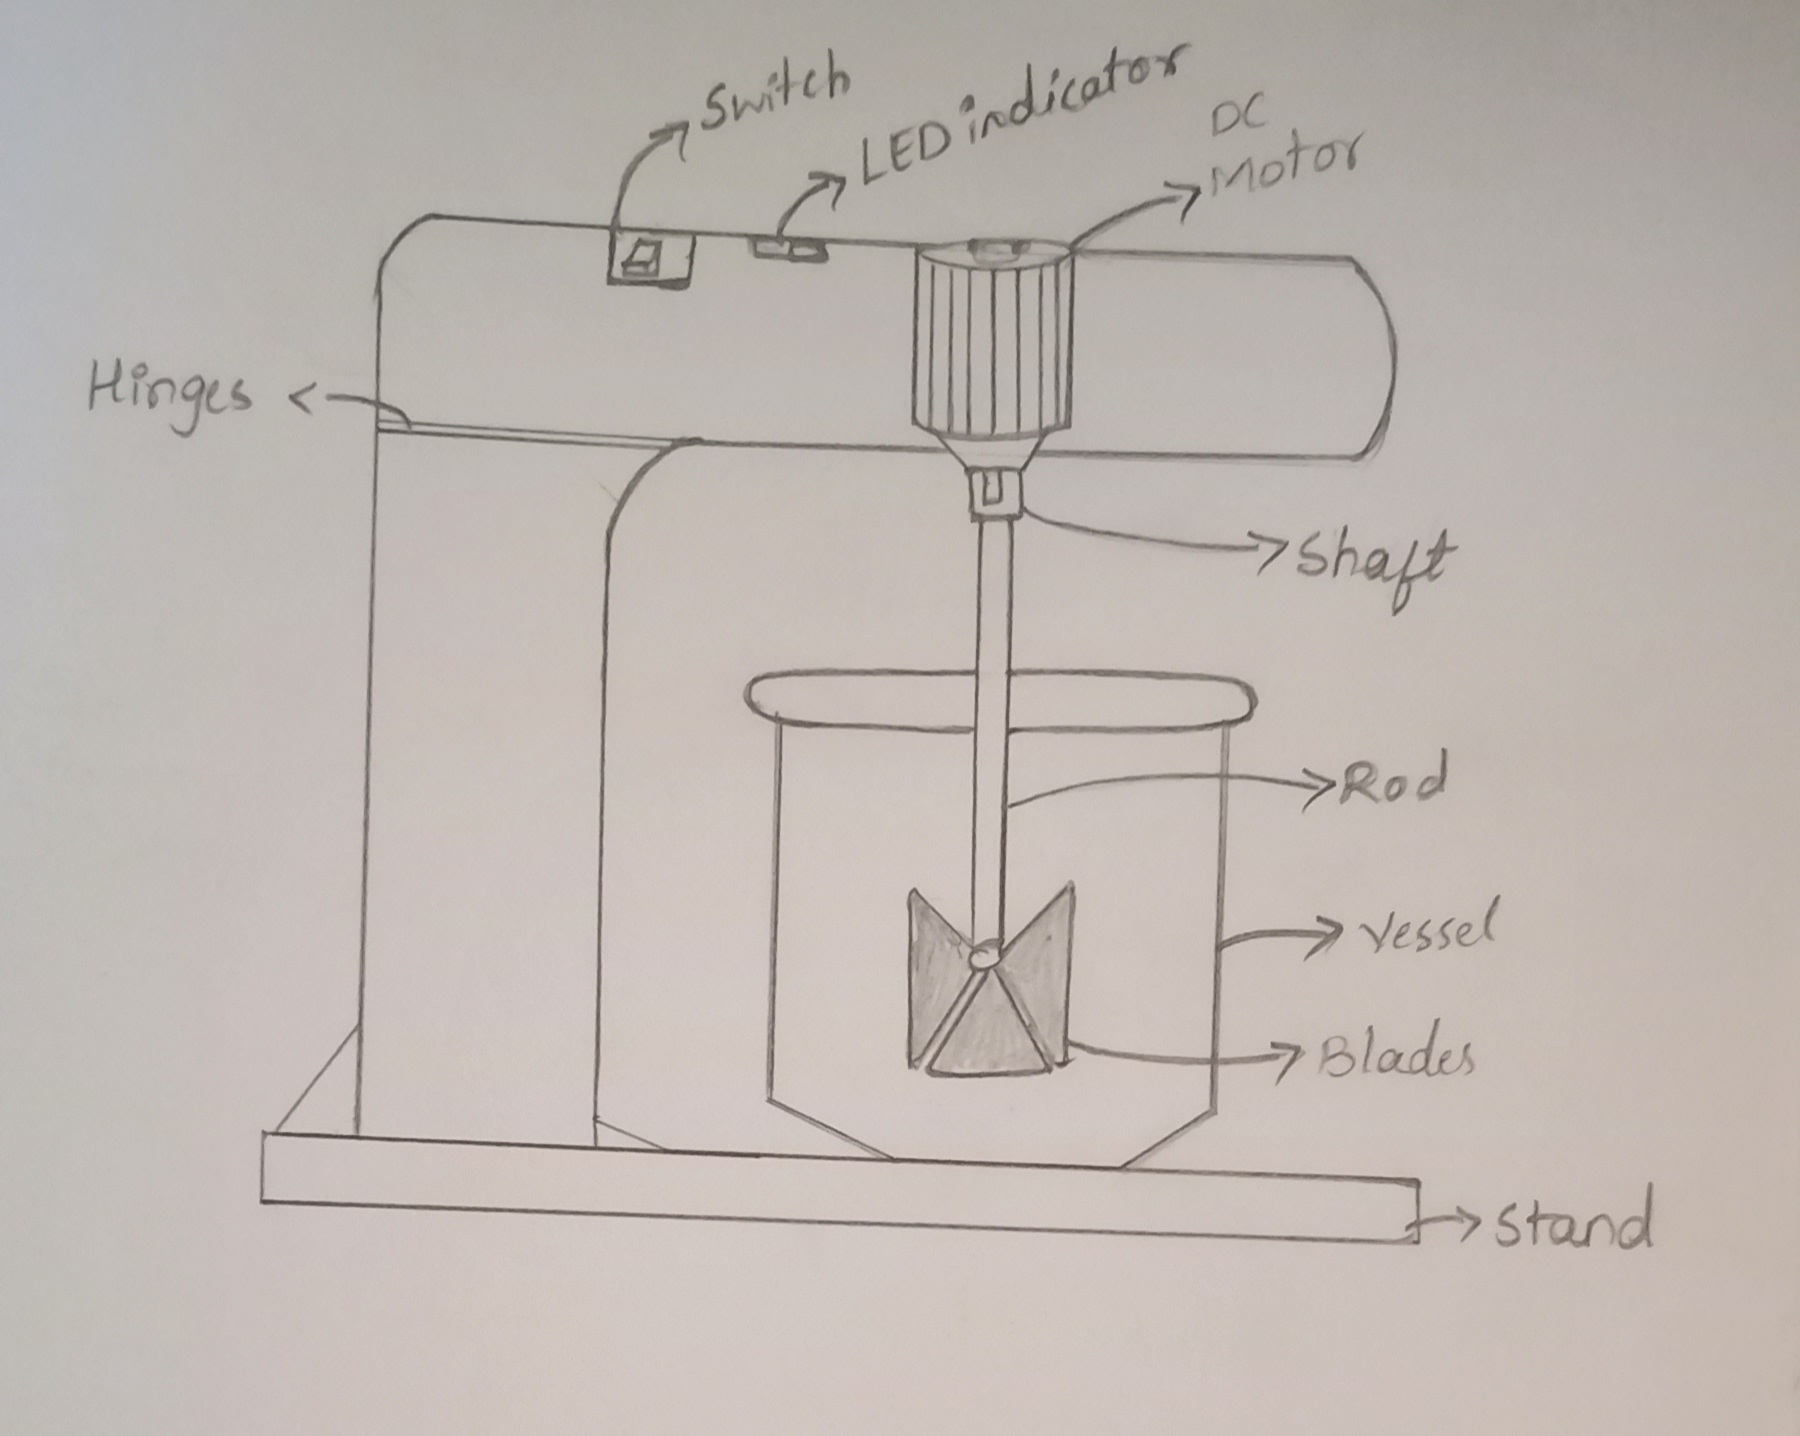 Switch
LED indicator
DC
Motor
Hinges
Shaft
Rod
Vessel
Blades
Stand